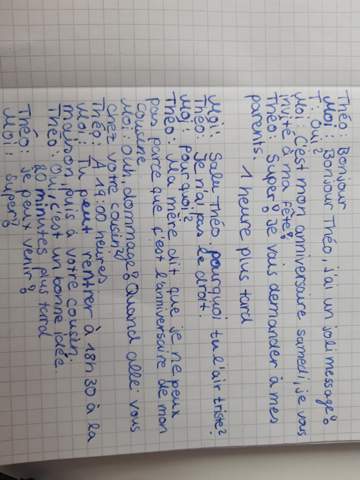 Théo: Bonjour
Moi: Bonjour Théo, j'ai un joli message!
T: Oui?
Moi: C'est mon anniversaire samedi, je vous
invite à ma fête!
Théo: Super! Je vous demander à mes
parents.
1 heure plus tard
Moi: Salu Théo, pourquoi tu l'air trisse?
Théo: Je n'ai pas le droit.
Moi: pourquoi?
Théo: Ma mère dit que je ne peux
pas parce que s'est l'anniversaire de mon
cousine
Moi: Ouh dommage! Quand allé vous
chez votre cousin?
Théo: À 19:00 heures
Moi: Tu peut rentrer à 18h30 à la
maison, puis à votre cousin.
Théo: Oui, c'est un bonne idée.
60 minutes plus tard
Théo: je peux venir!
Moi: Super!